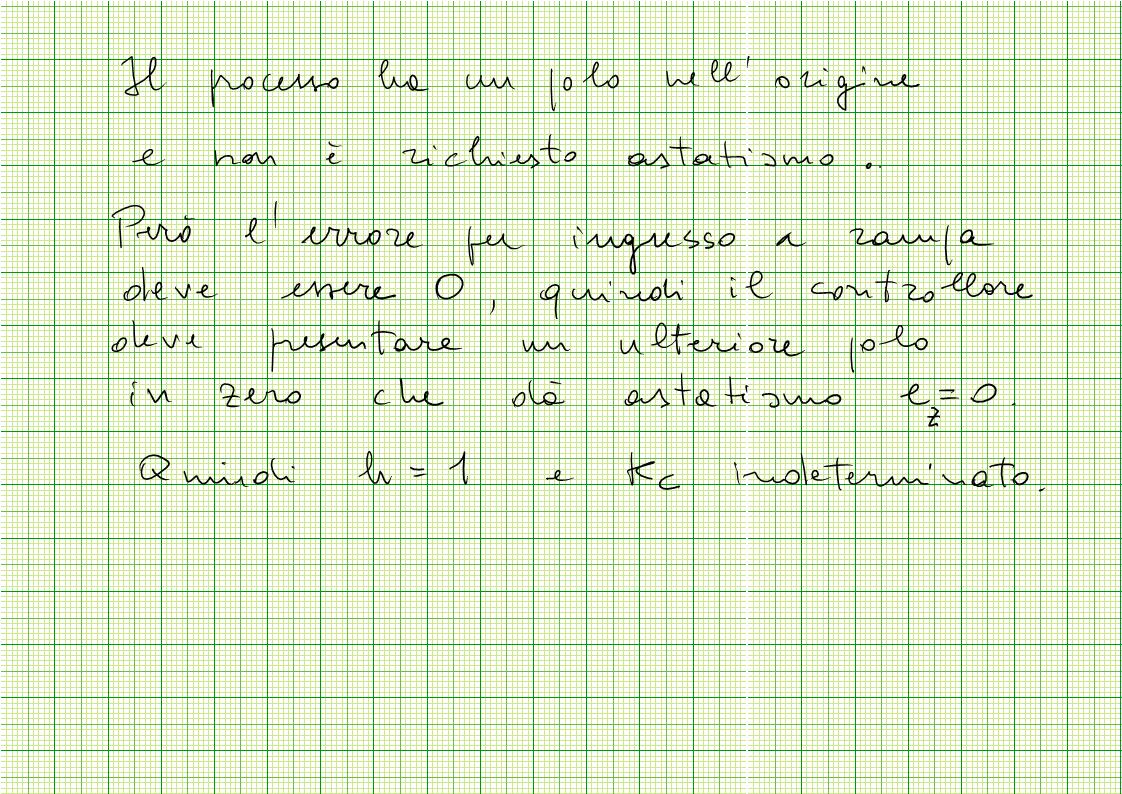 Il processo ha un polo nell'origine
e non è richiesto astatismo.
Però l'errore per ingresso a rampa
deve essere 0, quindi il controllore
deve presentare un ulteriore polo
in zero che dà astatismo e_z=0.
Quindi h=1 e Kc indeterminato.